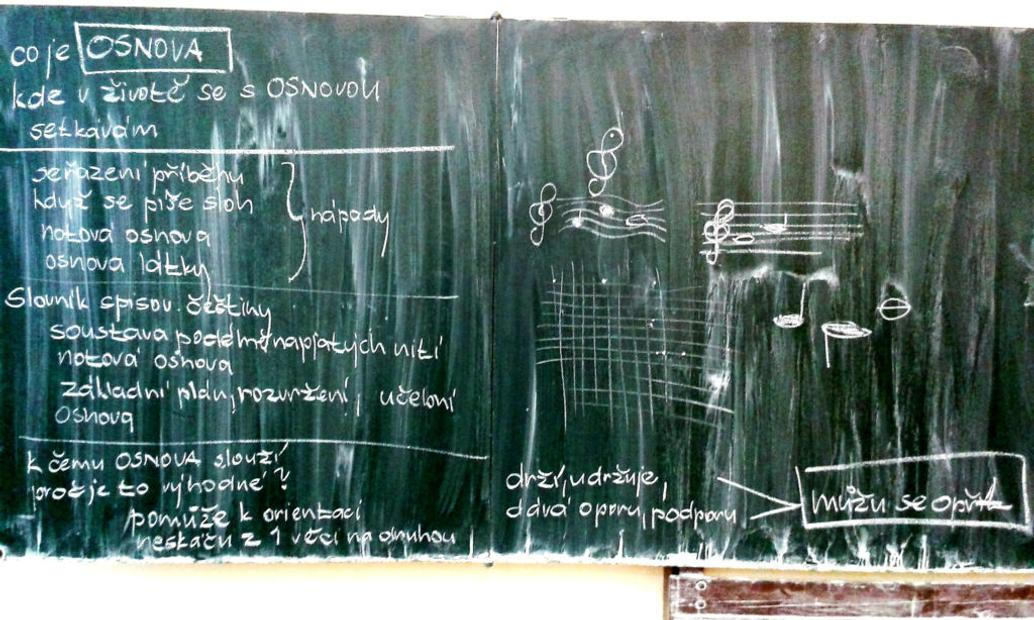 co je OSNOVA
kde v životě se s OSNOVOU
setkávám
seřazení příběhu
když se píše sloh
notová osnova
osnova látky
nápady
Slovník spisov. češtiny
soustava podélně napjatých nití
notová osnova
základní plán, rozvržení, učební
osnova
k čemu OSNOVA slouží
proč je to výhodné?
pomůže k orientaci
neskáču z 1 věci na druhou
drží, udržuje,
dává oporu, podporu
můžu se opřít